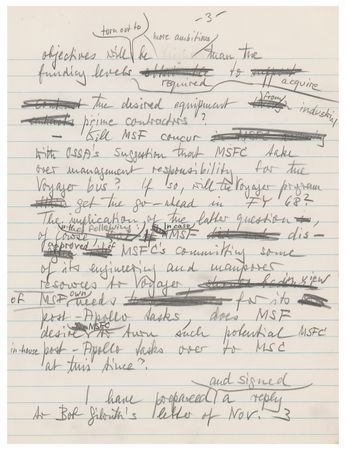 -3-
turn out to more ambitious
objectives will be than the
funding levels to
required acquire
the desired equipment from industry
prime contractors?
Will MSF concur
with OSSA's suggestion that MSFC take
over management responsibility for the
Voyager bus? If so, will the Voyager program
get the go-ahead in FY 68?
The implication of the latter question
of the following: in case MSF dis-
approved of MSFC's committing some
of its engineering and manpower
resources to Voyager
of MSF own needs for its
post-Apollo tasks does MSF
desire MSFC to turn such potential MSFC
in-house post-Apollo tasks over to MSC
at this time?
and signed
I have prepared a reply
to Bob Gilruth's letter of Nov. 3